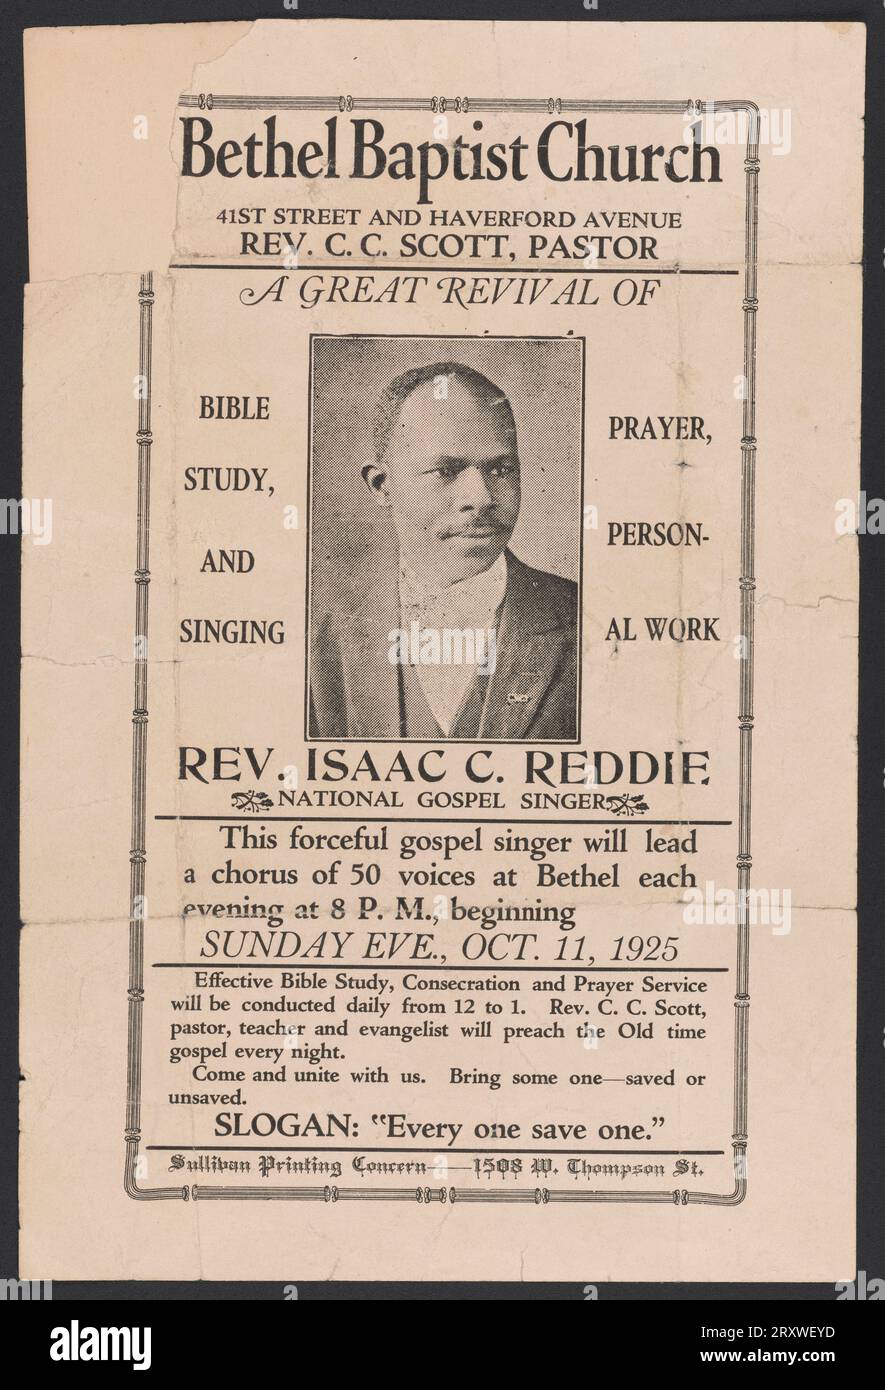 Bethel Baptist Church
41ST STREET AND HAVERFORD AVENUE
REV. C. C. SCOTT, PASTOR
A GREAT REVIVAL OF
BIBLE
STUDY,
AND
SINGING
PRAYER,
PERSON-
AL WORK
REV. ISAAC C. REDDIE
NATIONAL GOSPEL SINGER
This forceful gospel singer will lead
a chorus of 50 voices at Bethel each
evening at 8 P. M., beginning
SUNDAY EVE., OCT. 11, 1925
Effective Bible Study, Consecration and Prayer Service
will be conducted daily from 12 to 1. Rev. C. C. Scott,
pastor, teacher and evangelist will preach the Old time
gospel every night.
Come and unite with us. Bring some one—saved or
unsaved.
SLOGAN: "Every one save one."
Sullivan Printing Concern——1508 W. Thompson St.
alamy
alamy
Image ID: 2RXWEYD
www.alamy.com